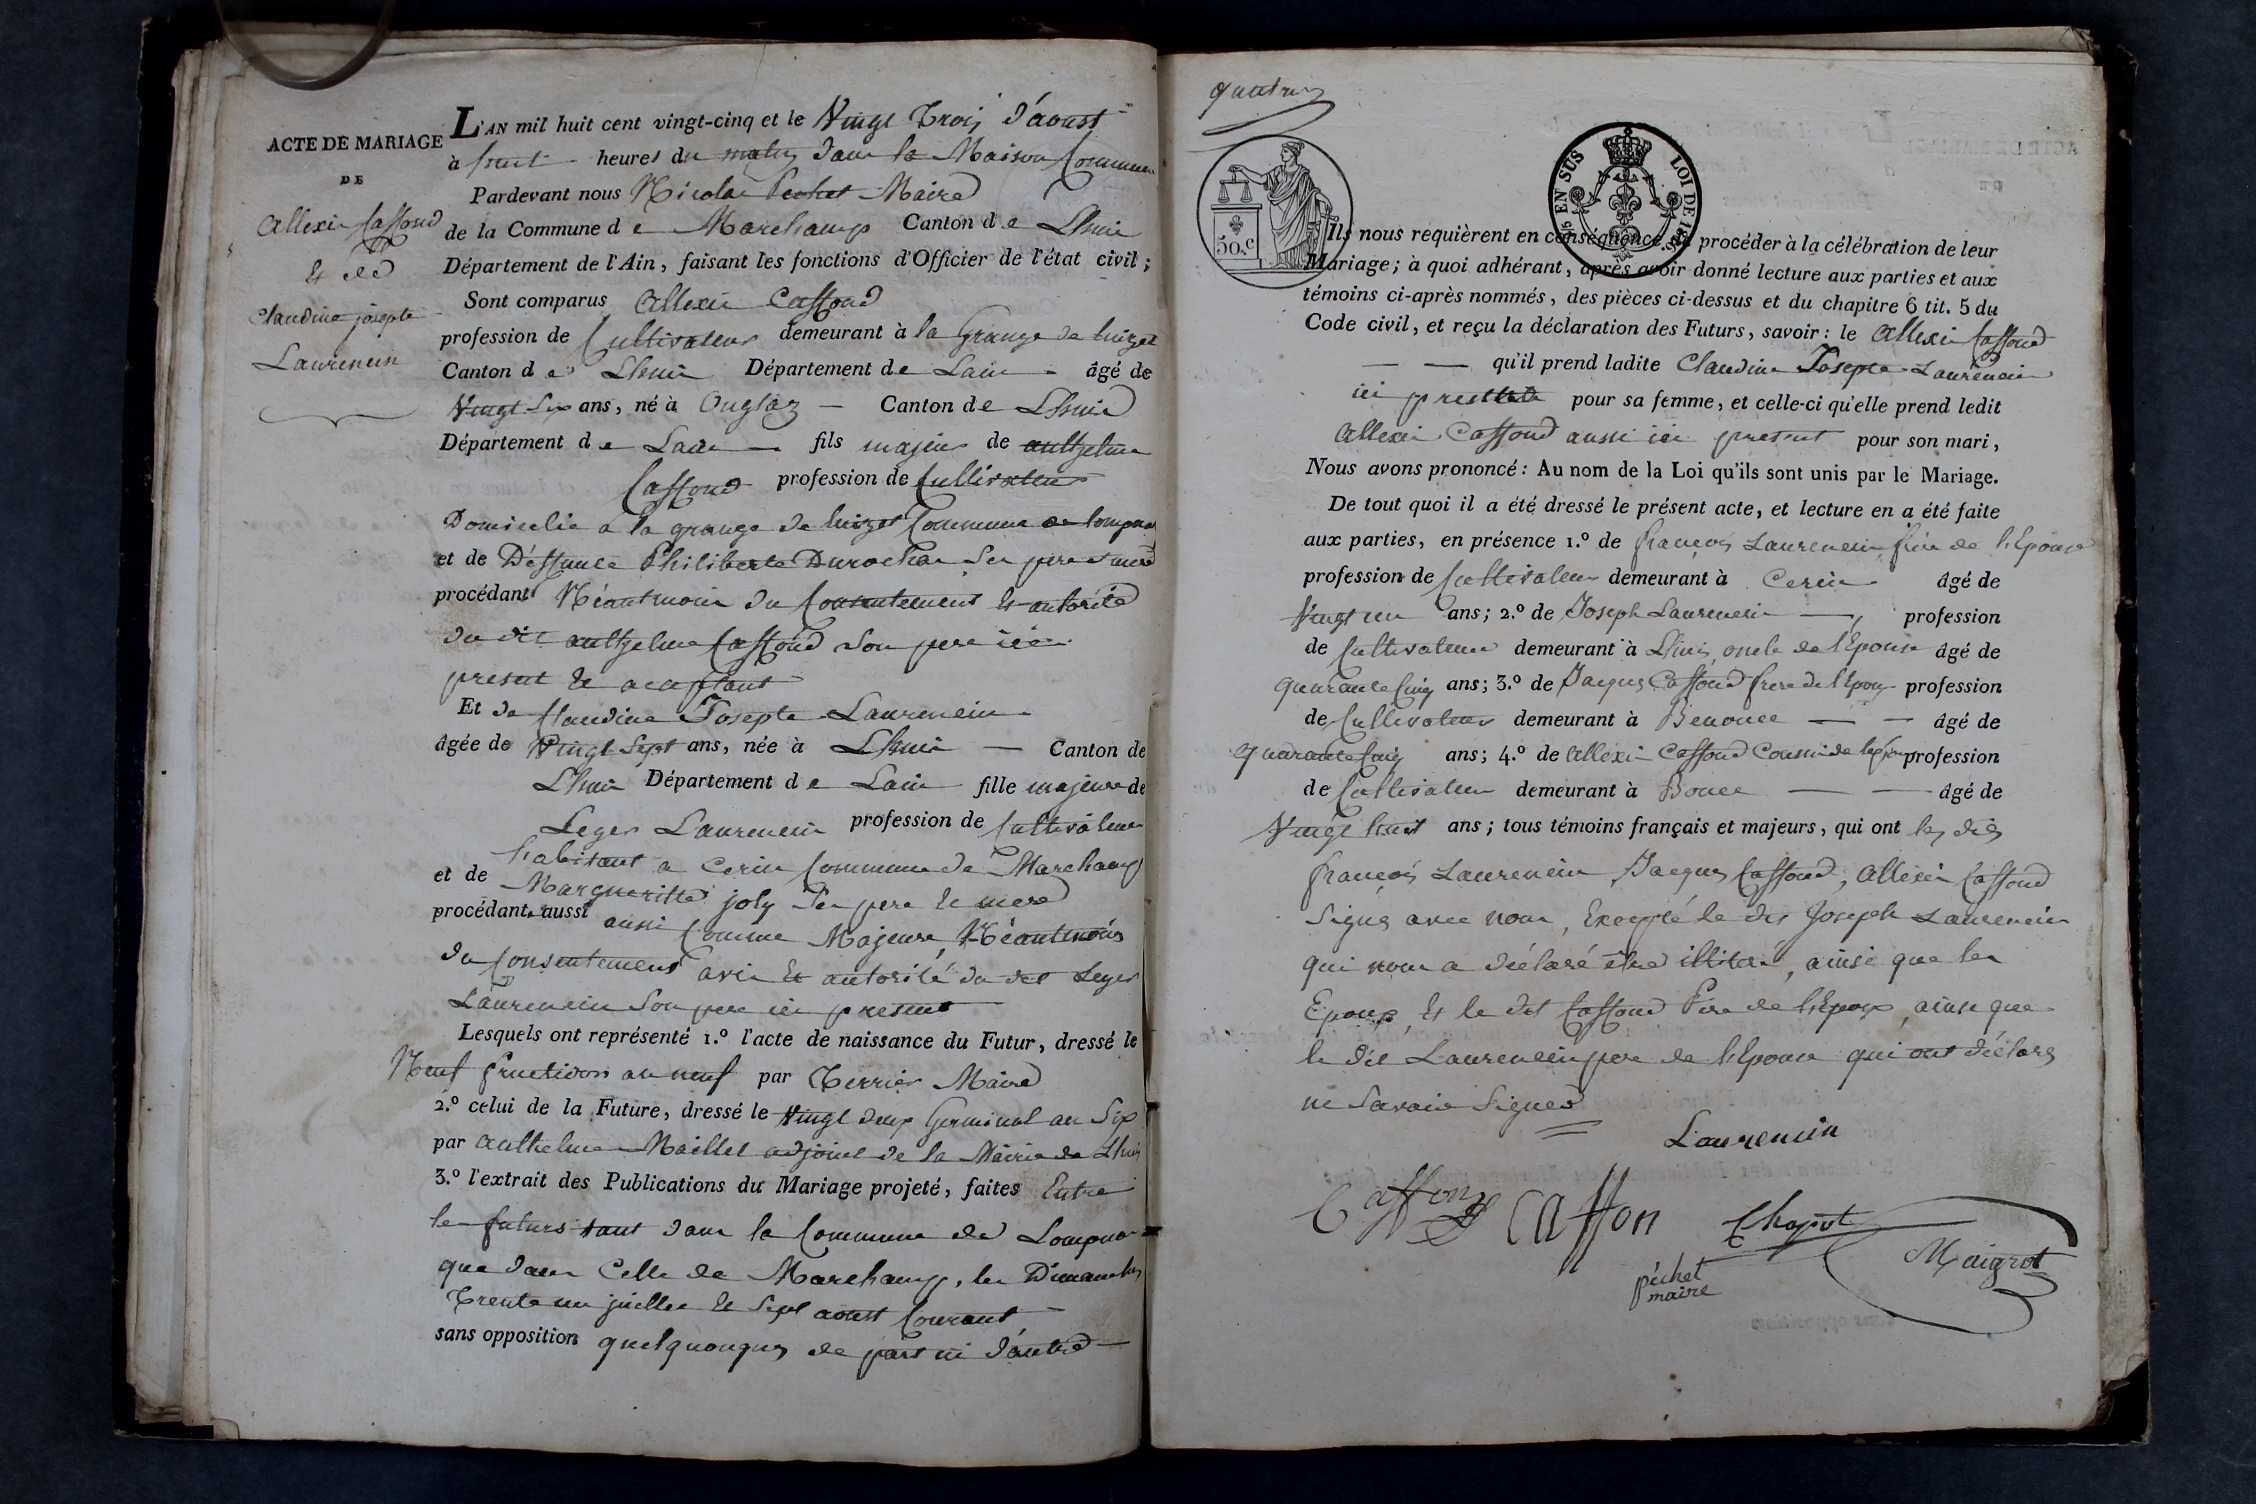 ACTE DE MARIAGE
DE
Allexis Caffond
Et de
Claudine josepte
Laurencin
L'AN mil huit cent vingt-cinq et le Vingt Trois d'áoust
à huit heures du matin dans la Maison Commune
Pardevant nous Nicolas Pechet Maire
de la Commune de Marchamp Canton de Lhuis
Département de l'Ain, faisant les fonctions d'Officier de l'état civil;
Sont comparus Allexis Caffond
profession de Cultivateur demeurant à la Grange de
Canton de Lhuis Département de Lain âgé de
Vingt Six ans, né à Canton de Lhuis
Département de Lain fils majeur de anthelme
Caffond profession de Cultivateur
Domicilié a la grange de Commune de
et de Déffunte Philiberte Durochat Ses pere et mere
procédant Néantmoins du Consentement Et autorité
du dit anthelme Caffond Son pere ici
present Et aceptant
Et de Claudine Josepte Laurencin
âgée de Vingt Sept ans, née à Lhuis Canton de
Lhuis Département de Lain fille majeure de
Leger Laurencin profession de Cultivateur
habitant a Cerin Commune de Marchamp
et de Margueritte joly Ses pere Et mere
procédant aussi aussi Comme Majeure, Néantmoins
du Consentement avis Et autorité du dit Leger
Laurencin Son pere ici present
Lesquels ont représenté 1.º l'acte de naissance du Futur, dressé le
Neuf fructidor an neuf par Terrier Maire
2.º celui de la Future, dressé le Vingt deux Germinal an Six
par anthelme Maillet adjoint de la Mairie de Lhuis
3.º l'extrait des Publications du Mariage projeté, faites Entre
les futurs tant dans la Commune de
que dans Celle de Marchamp, les Dimanches
Trente un juillet Et Sept aoust Courant
sans opposition quelquonques de part ni d'autre
50.c
EN SUS
LOI DE
Ils nous requièrent en conséquence de procéder à la célébration de leur
Mariage; à quoi adhérant, après avoir donné lecture aux parties et aux
témoins ci-après nommés, des pièces ci-dessus et du chapitre 6 tit. 5 du
Code civil, et reçu la déclaration des Futurs, savoir: le Allexis Caffond
qu'il prend ladite Claudine Josepte Laurencin
ici presente pour sa femme, et celle-ci qu'elle prend ledit
Allexis Caffond aussi ici present pour son mari,
Nous avons prononcé: Au nom de la Loi qu'ils sont unis par le Mariage.
De tout quoi il a été dressé le présent acte, et lecture en a été faite
aux parties, en présence 1.º de françois Laurencin frère de l'Epouse
profession de Cultivateur demeurant à Cerin âgé de
Vingt un ans; 2.º de Joseph Laurencin profession
de Cultivateur demeurant à Lhuis, oncle de l'Epouse âgé de
quarante Cinq ans; 3.º de Jacques Caffond frere de l'Epoux profession
de Cultivateur demeurant à Benonce âgé de
quarante Cinq ans; 4.º de Allexis Caffond Cousin de profession
de Cultivateur demeurant à âgé de
Vingt huit ans; tous témoins français et majeurs, qui ont les dits
françois Laurencin, Jacques Caffond, Allexis Caffond
Signés avec nous, Excepté le dit Joseph Laurencin
qui nous a déclaré être illiteré, ainsi que les
Epoux, Et le dit Caffond Père de l'Epoux, ainsi que
le dit Laurencin pere de l'Epouse qui ont déclarés
ne Savoir Signer
Laurencin
Caffond Caffon Chapot
Maigrot
péchet
maire